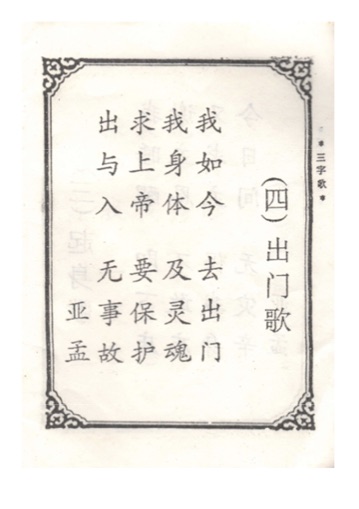 *三字歌*
(四)出门歌
我如今 去出门
我身体 及灵魂
求上帝 要保护
出与入 无事故
亚孟